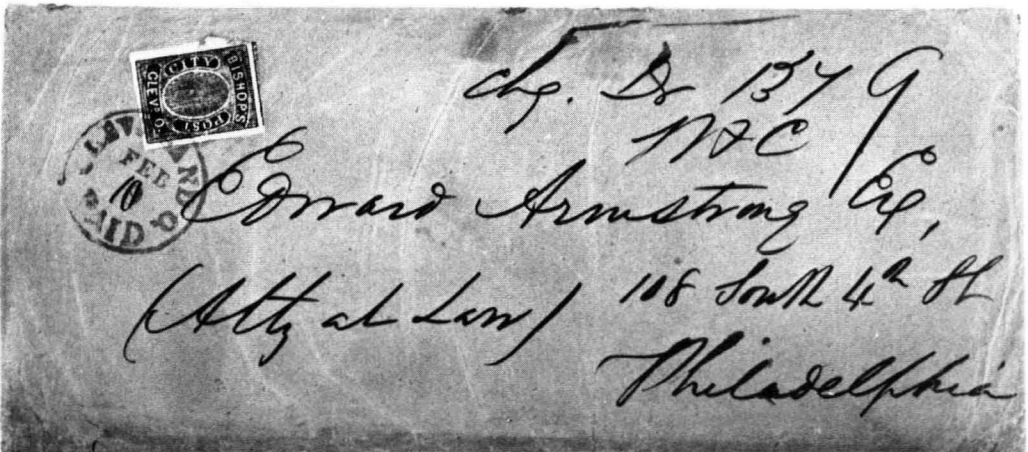 BISHOP'S
CITY
POST
CLEVD O.
CLEVELAND O.
FEB
10
PAID
chg. Dr 137 9
Edward Armstrong Esq,
(Atty at Law) 108 South 4th St
Philadelphia